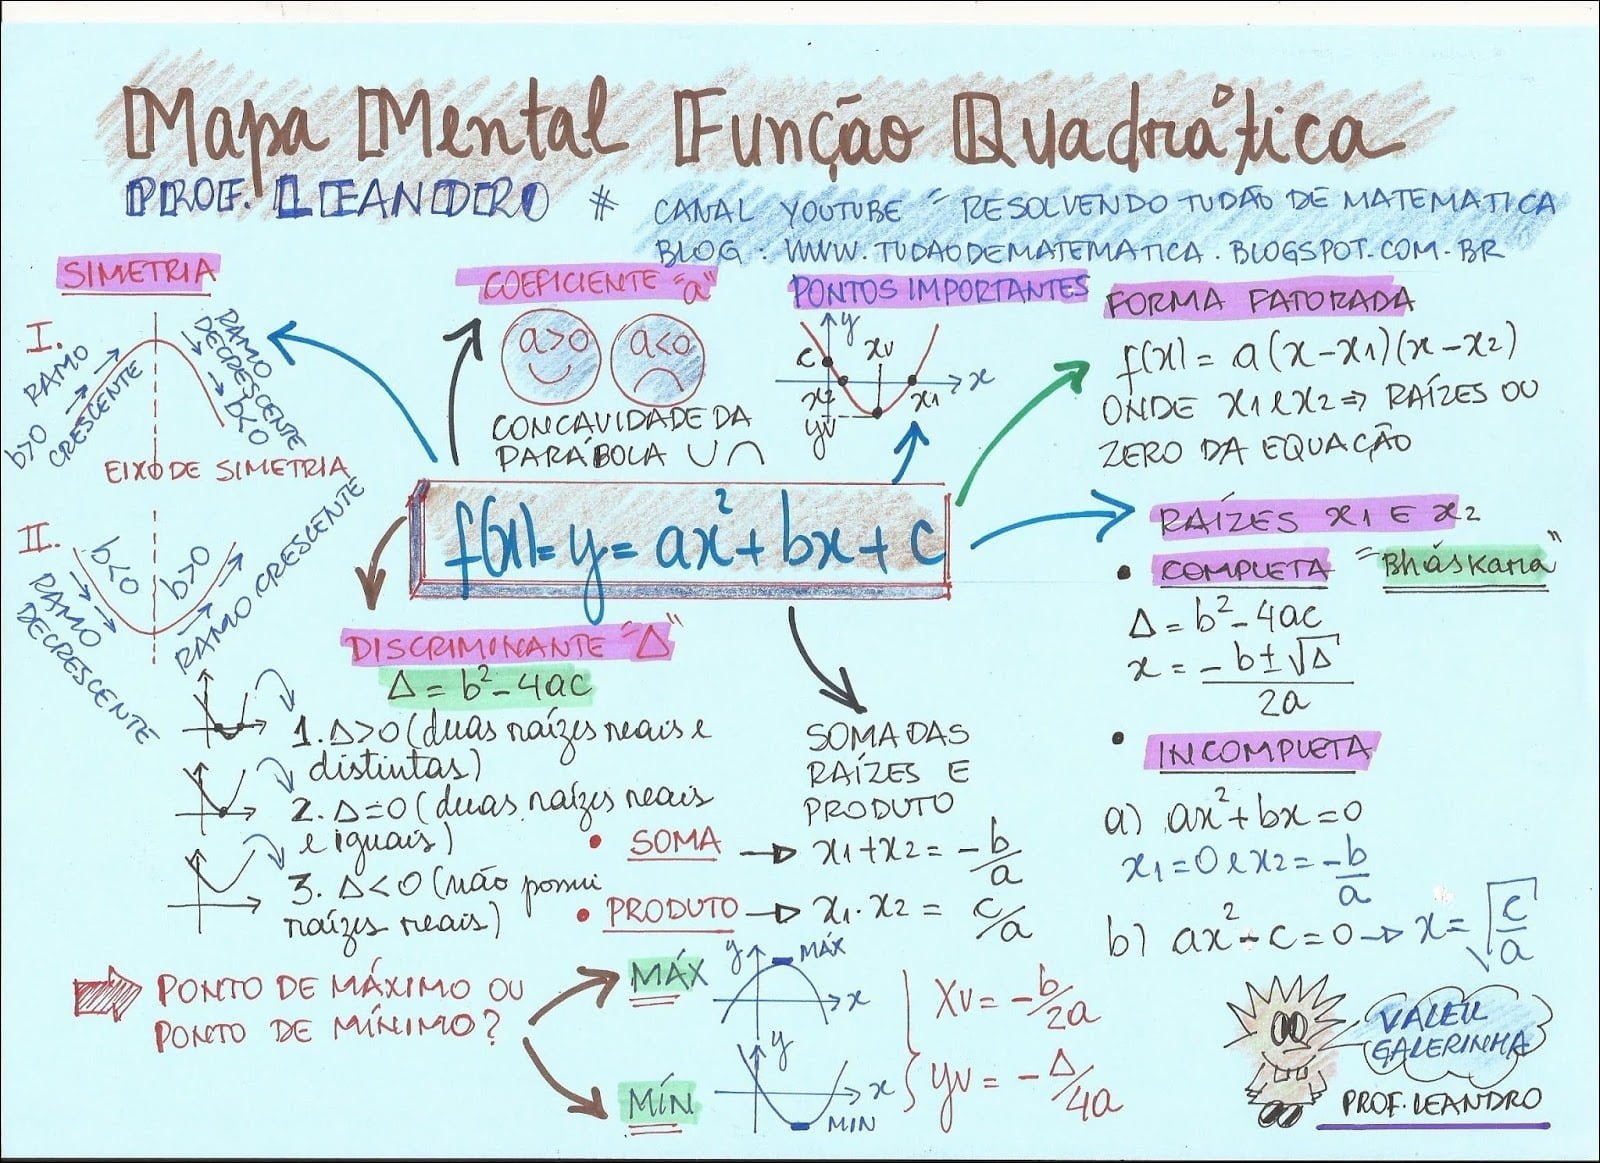 Mapa Mental Função Quadrática
PROF. LEANDRO # CANAL YOUTUBE = RESOLVENDO TUDÃO DE MATEMATICA
BLOG: WWW.TUDAODEMATEMATICA.BLOGSPOT.COM.BR
SIMETRIA
I.
b>0 RAMO CRESCENTE
RAMO DECRESCENTE b<0
EIXO DE SIMETRIA
II.
b<0
b>0
RAMO DECRESCENTE
RAMO CRESCENTE
COEFICIENTE "a"
a>0
a<0
CONCAVIDADE DA
PARÁBOLA ∪ ∩
PONTOS IMPORTANTES
y
c
xv
x
x2
x1
yv
FORMA FATORADA
f(x) = a(x-x1)(x-x2)
ONDE x1 e x2 ⇒ RAÍZES OU
ZERO DA EQUAÇÃO
f(x)=y=ax²+bx+c
RAÍZES x1 E x2
• COMPLETA "Bháskara"
Δ = b²-4ac
x = -b±√Δ
2a
• INCOMPLETA
a) ax²+bx=0
x1=0 e x2=-b/a
b) ax²-c=0 → x=√c/a
DISCRIMINANTE "Δ"
Δ= b²-4ac
1. Δ>0 (duas raízes reais e
distintas)
2. Δ=0 (duas raízes reais
e iguais)
3. Δ<0 (não possui
raízes reais)
SOMA DAS
RAÍZES E
PRODUTO
• SOMA → x1+x2 = -b/a
• PRODUTO → x1.x2 = c/a
PONTO DE MÁXIMO OU
PONTO DE MÍNIMO?
MÁX
y
MÁX
x
MÍN
y
x
MIN
Xv = -b/2a
yv = -Δ/4a
VALEU
GALERINHA
PROF. LEANDRO